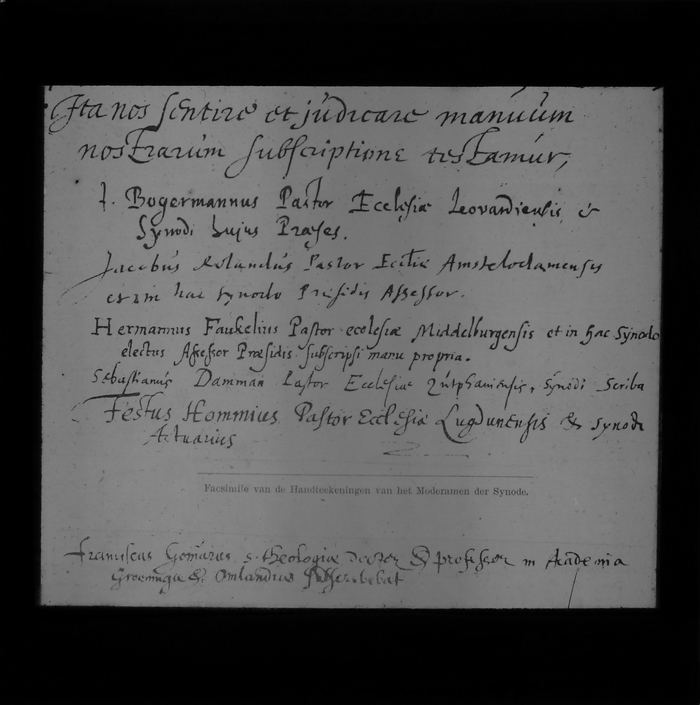 Ita nos sentire et judicare manuum
nostrarum subscriptione testamur,
J. Bogermannus Pastor Ecclesiæ Leovardiensis &
Synodi hujus Præses.
Jacobus Rolandus Pastor Ecclæ Amstelodamensis
et in hac synodo Præsidis Assessor.
Hermannus Faukelius Pastor ecclesiæ Middelburgensis et in hac Synodo
electus Assessor Præsidis subscripsi manu propria.
Sebastianus Damman Pastor Ecclesiæ Zutphaniensis, Synodi Scriba
Festus Hommius Pastor Ecclesiæ Lugdunensis & Synodi
Actuarius
Facsimile van de Handteekeningen van het Moderamen der Synode.
Franciscus Gomarus s. theologiæ doctor & professor in Academia
Groeningæ & Omlandiæ